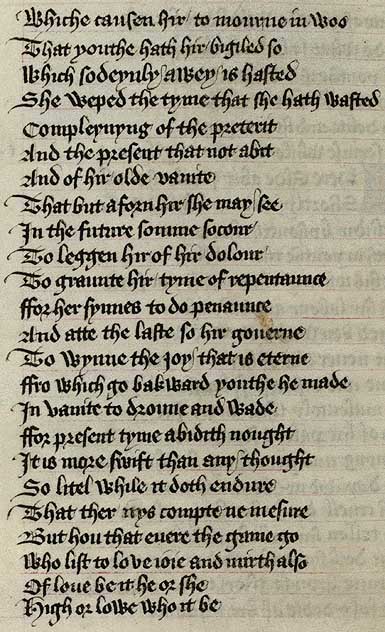 Whiche causen hir to mourne in woo
That youthe hath hir bigiled so
Which sodeynly awey is hasted
She weped the tyme that she hath wasted
Compleynyng of the preterit
And the present that not abit
And of hir olde vanite
That but aforn hir she may see
In the future somme socour
To leggen hir of hir dolour
To graunte hir tyme of repentaunce
ffor her synnes to do penaunce
And atte the laste so hir gouerne
To wynne the ioy that is eterne
ffro which go bakward youthe he made
In vanite to droune and wade
ffor present tyme abidith nought
It is more swift than any thought
So litel while it doth endure
That ther nys compte ne mesure
But hou that euere the game go
Who list to love ioie and mirth also
Of loue be it he or she
High or lowe who it be